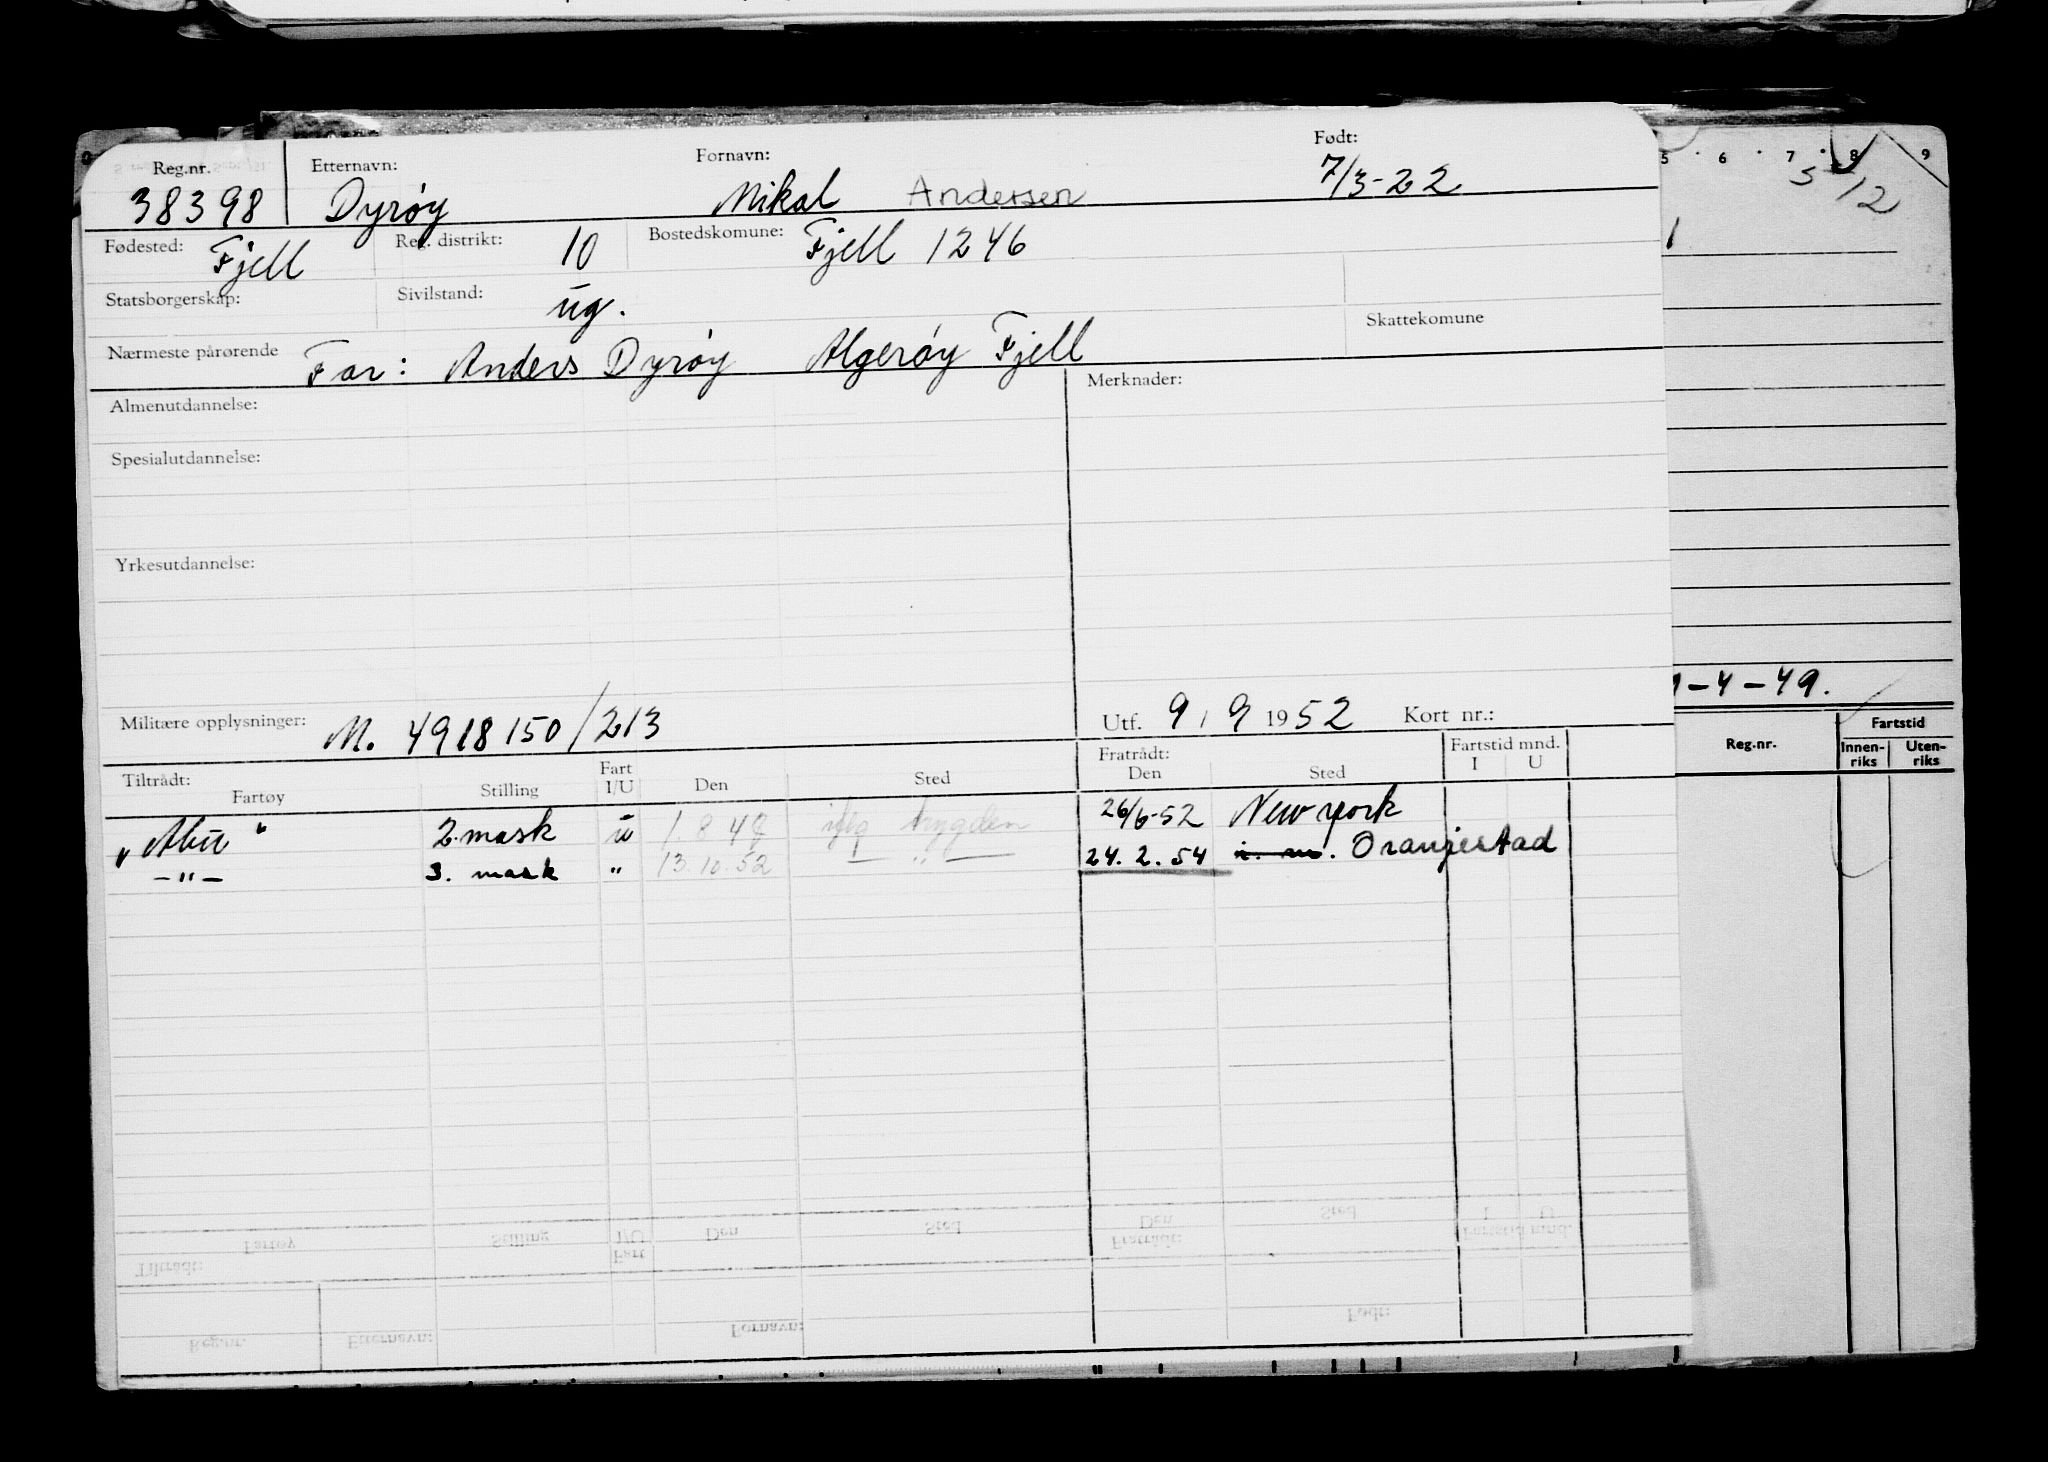 Reg.nr. Etternavn: Fornavn: Født:
38398 Dyrøy Mikal Andersen 7/3-22
Fødested: Fjell Reg. distrikt: 10 Bostedskomune: Fjell 1246
Statsborgerskap: Sivilstand: ug.
Nærmeste pårørende Far: Anders Dyrøy Algerøy Fjell Skattekomune
Almenutdannelse: Merknader:
Spesialutdannelse:
Yrkesutdannelse:
Militære opplysninger: M. 4918150/213 Utf. 9 / 9 1952 Kort nr.:
Tiltrådt: Fart Fratrådt: Fartstid mnd.
Fartøy Stilling I/U Den Sted Den Sted I U
2. mask u 26/6-52 New york
–"– 3. mask " 13.10.52 — " — 24. 2. 54 Oranjestad
5 6 7 8 9
5/12
-4-49.
Reg.nr. Fartstid
Innen-riks Uten-riks
Fartøy Stilling I/U Den Sted Den Sted I U
Tiltrådt: Fart Fratrådt: Fartstid mnd.
Reg.nr. Etternavn: Fornavn: Født: